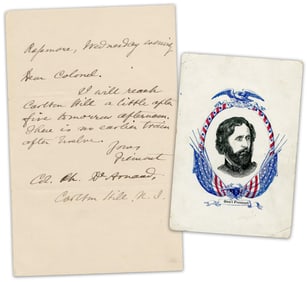 Wednesday evening
Dear Colonel.
I will reach
Carlton Hill a little after
five tomorrow afternoon.
There is no earlier train
after twelve.
Yours
Fremont
Col. Ch. De Arnaud,
Carlton Hill N. J.
Gen'l Fremont